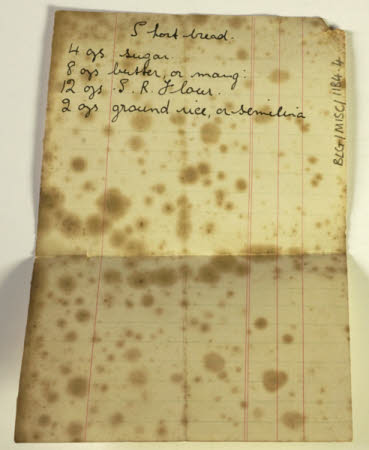 Short bread.
4 ozs sugar.
8 ozs butter, or marg:
12 ozs S. R. Flour.
2 ozs ground rice, or semilina
BLG/MISC/1184.4